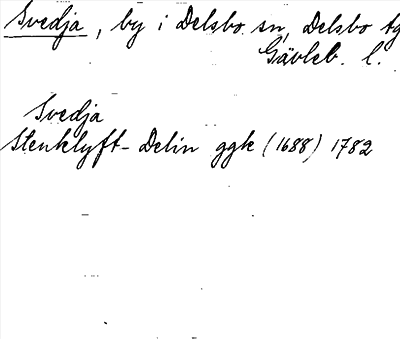 Svedja, by i Delsbo sn, Delsbo tg
Gävleb. l.
Svedja
Stenklyft-Delin ggk (1688) 1782